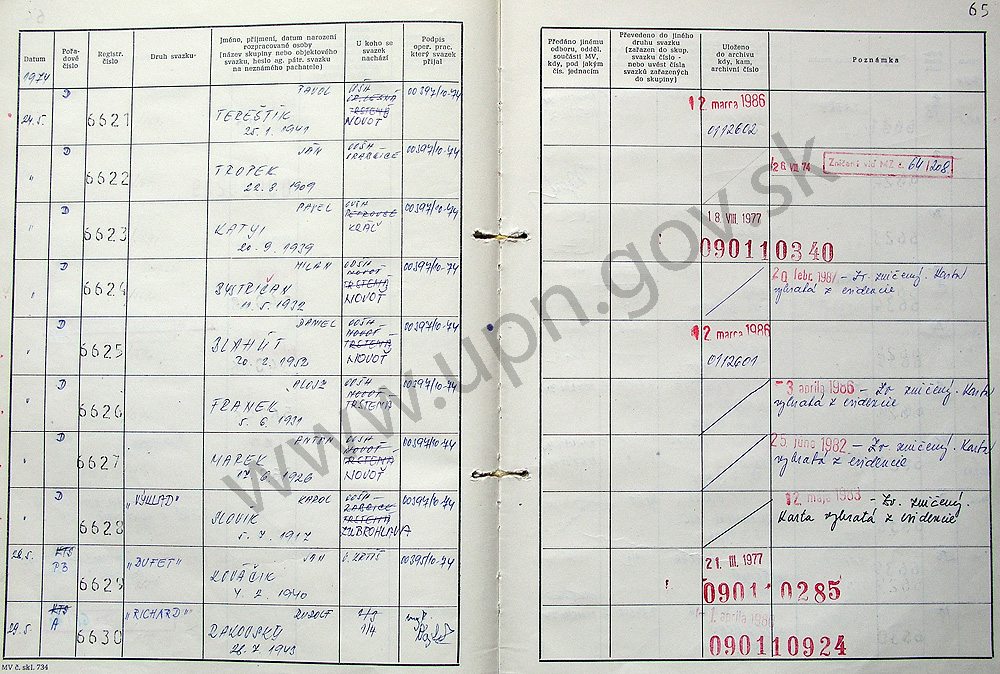 65
Datum
Pořa-
dové
číslo
Registr.
číslo
Druh svazku
Jméno, příjmení, datum narození
rozpracované osoby
(název skupiny nebo objektového
svazku, heslo ag. pátr. svazku
na neznámého pachatele)
U koho se
svazek
nachází
Podpis
oper. prac.
který svazek
přijal
Předáno jinému
odboru, odděl.
součásti MV,
kdy, pod jakým
čís. jednacím
Převedeno do jiného
druhu svazku
(zařazen do skup.
svazku číslo -
nebo uvést čísla
svazků zařazených
do skupiny)
Uloženo
do archivu
kdy, kam,
archivní číslo
Poznámka
1974
24.5. D 6621 PAVOL
TEREŠTIK
25. 1. 1941
OOŠH
TRSTENÁ
NOVOŤ
00397/10-74
12 marca 1986
0112602
" D 6622 JÁN
TROPEK
22. 8. 1909
OOŠH
00397/10-74
28 VII 74
Zničen: viď NZ č. 64/208
" D 6623 PAVEL
KATYI
20. 9. 1939
OOŠH
KRÁĽ
00397/10-74
18. VIII. 1977
090110340
" D 6624 MILAN
BYSTRIČAN
11. 5. 1932
OOŠH
NOVOŤ
TRSTENÁ
NOVOŤ
00397/10-74
20 febr. 1987 - Zv. zničený. Karta
vybratá z evidencie
" D 6625 DANIEL
BLAHÚT
20. 2. 1952
OOŠH
NOVOŤ
TRSTENÁ
NOVOŤ
00397/10-74
12 marca 1986
0112601
" D 6626 ALOJZ
FRANEK
5. 6. 1931
OOŠH
NOVOŤ
TRSTENÁ
00397/10-74
3 apríla 1986 - Zv. zničený. Karta
vybratá z evidencie
" D 6627 ANTON
MAREK
17. 6. 1926
OOŠH
NOVOŤ
TRSTENÁ
NOVOŤ
00397/10-74
25 júna 1982 - Zv. zničený. Karta
vybratá z evidencie
" D 6628 "VÝHĽAD" KAROL
SLOVIK
5. 7. 1917
OOŠH
TRSTENÁ
ZUBROHLAVA
00397/10-74
12 mája 1983 - Zv. zničený.
Karta vybratá z evidencie
28.5. KTS
PB 6629 "BUFET" JÁN
KOVÁČIK
4. 2. 1940
V. KRTÍŠ
00395/10-74
21. III. 1977
090110285
29.5. KTS
A 6630 "RICHARD" RUDOLF
RAKOVSKÝ
26. 7. 1943
1. apríla 1980
090110924
MV č. skl. 734
www.upn.gov.sk